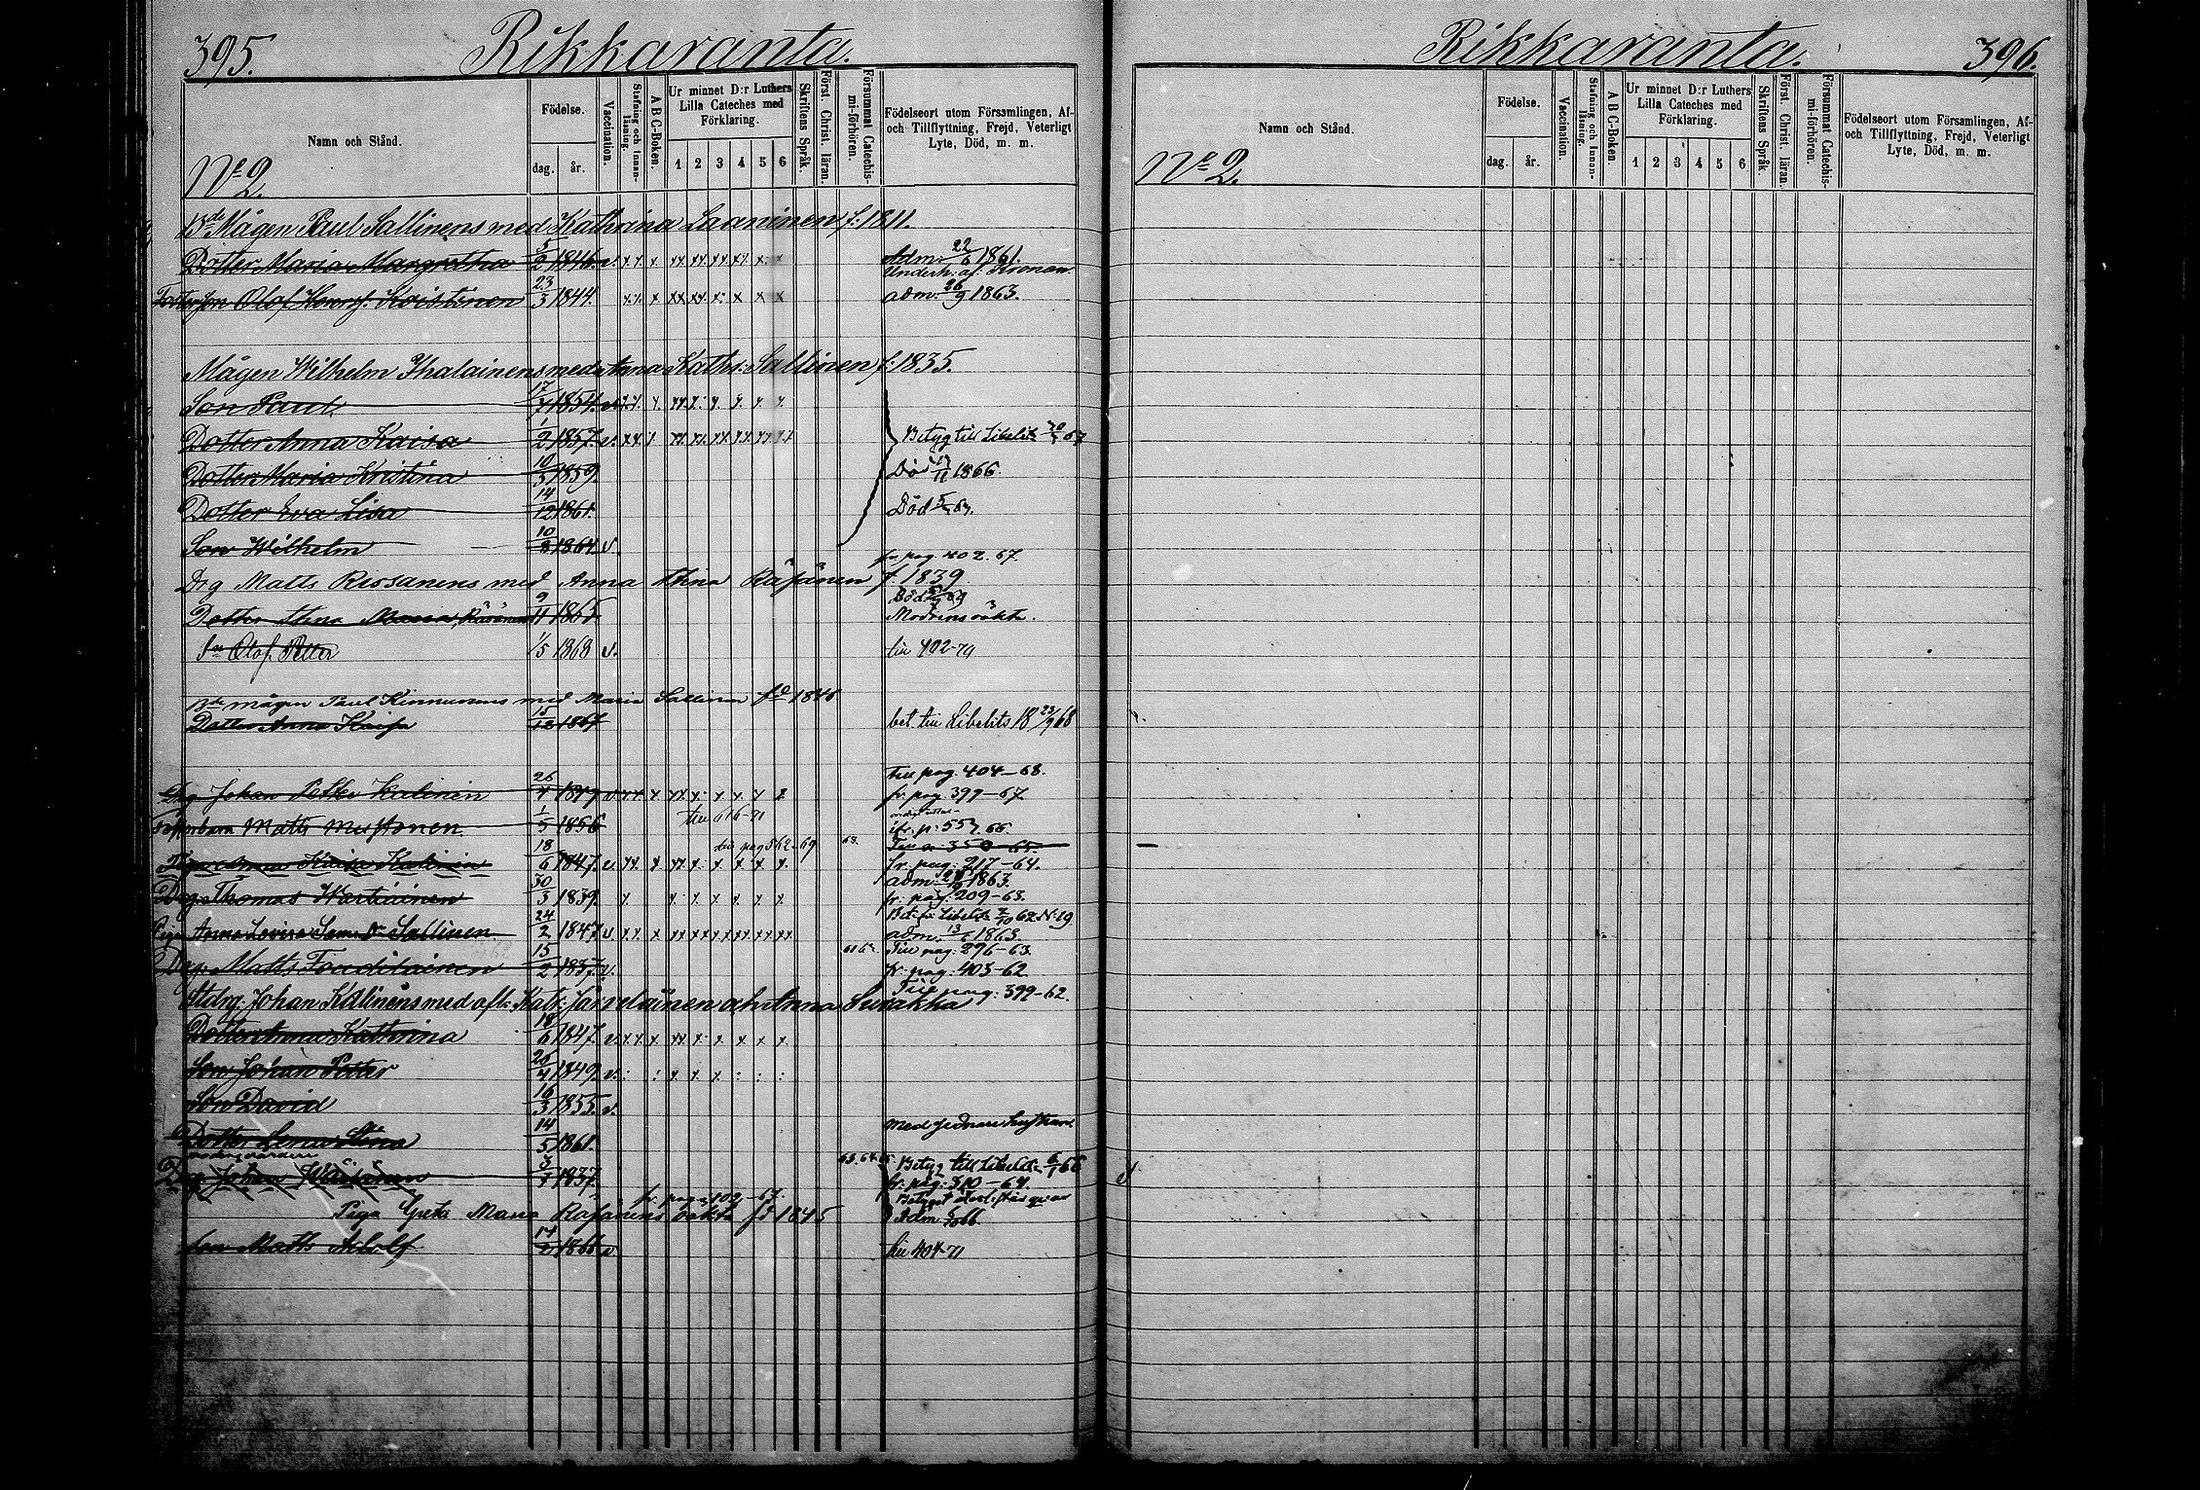 395. Rikkaranta.
Namn och Stånd.
Födelse.
dag. år.
Vaccination.
Stafning och Innan-läsning.
A B C-Boken.
Ur minnet D:r Luthers Lilla Cateches med Förklaring.
1 2 3 4 5 6
Skriftens Språk.
Först. Christ. läran.
Försummat Catechis-mi-förhören.
Födelseort utom Församlingen, Af- och Tillflyttning, Frejd, Veterligt Lyte, Död, m. m.
No 2.
Bde Mågen Paul Sallinens med Kathrina Laaninen f. 1811.
Dotter Maria Margretha 5/2 1846. v. Adm: 22/6 1861.
Underh: af Kronan.
Fosterson Olof Koistinen 23/3 1844. adm: 26/9 1863.
Mågen Wilhelm Ihalainens med Anna Kathr: Sallinen f. 1835.
Son Paul 17/7 1854. v.
Dotter Anna Kaisa 1/2 1857. v. Betyg till Libelits 67
Dotter Maria Kristina 10/3 1859. Död 1866.
Dotter Eva Lisa 14/12 1861. Död
Son Wilhelm 10/8 1864 v.
fr. pag. 402. 67.
Drg Matts Rossanens med Anna Stina Räsänen f. 1839.
Dotter Stina Maria Räsänen 9/11 1865 Modrens oäkta.
Son Olof Petter 1/5 1868 v. till 402-71
Bde mågen Paul Kinnunens med Maria Sallinen fd 1846
Dotter Anna Kaisa 15/12 1867 bet. till Libelits 18 23/9 68
Till pag. 404-68.
Drg Johan Petter Kalinin 26/4 1849 v. fr. pag. 399-67
till 616-71
Fosterbarn Matts Mustonen 1/5 1856 fr. p: 557. 66.
till pag 562-69
Piga Anna Kaisa Kalinin 18/6 1847. v. fr. pag: 217-64.
adm: 1863.
Drg Thomas Wartiainen 30/3 1839. fr. pag: 209-63.
Bet: fr. Libelits 62 N:19
Piga Anna Lovisa Sam: Dr Sallinen 24/2 1847. v. adm: 13/6 1863.
Till pag: 296-63.
Drg Matts Toudilainen 15/2 1837. v. fr. pag: 403-62.
Till pag: 399-62.
Afldrg: Johan Kallinens med afl: Kat: Järveläinen och Anna Surakka
Dotter Anna Kathrina 18/6 1847. v.
Son Johan Petter 26/4 1849. v.
Son David 16/3 1855. v.
Dotter Lena Stina 14/5 1861.
Med sednare hustrun
Betyg till Libelits 6/1 66
Drg Johan Wäisänen 3/7 1837. fr. pag: 310-64.
fr. pag: 102-67.
Piga Greta Maria Räsänens oäkta fd 1845 Adm
Son Matts Adolf 17/2 1866 v till 404-71
Rikkaranta. 396.
Namn och Stånd.
Födelse.
dag. år.
Vaccination.
Stafning och Innan-läsning.
A B C-Boken.
Ur minnet D:r Luthers Lilla Cateches med Förklaring.
1 2 3 4 5 6
Skriftens Språk.
Först. Christ. läran.
Försummat Catechis-mi-förhören.
Födelseort utom Församlingen, Af- och Tillflyttning, Frejd, Veterligt Lyte, Död, m. m.
No 2.